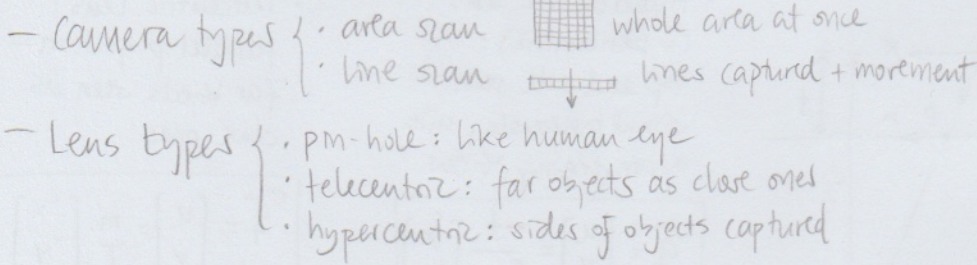 – Camera types { · area scan whole area at once
· line scan lines captured + movement
– Lens types { · pin-hole: like human eye
· telecentric: far objects as close ones
· hypercentric: sides of objects captured